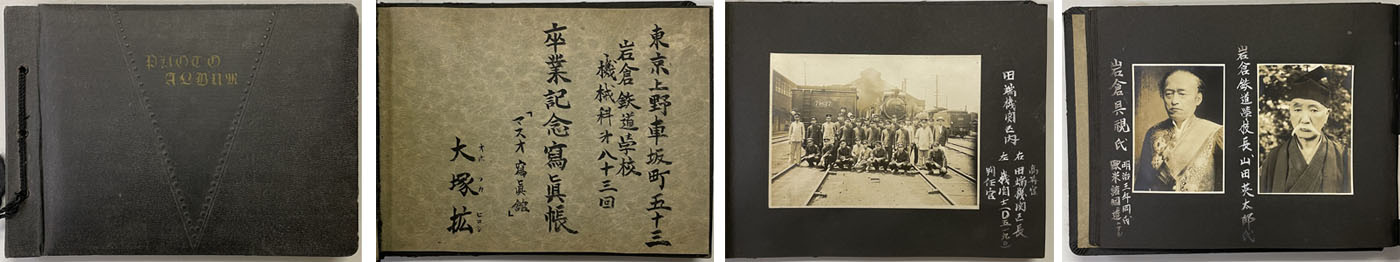 PHOTO
ALBUM
東京上野車坂町五十三
岩倉鉄道学校
機械科才八十三回
卒業記念寫眞帳
「マスオ寫眞館」
大塚拡
オホ ツカ ヒロシ
田端機関区内
高等官
右 田端機関区長
左 機関士
判任官
岩倉鉄道學校長山田英太郎氏
岩倉具視氏
明治三年同氏